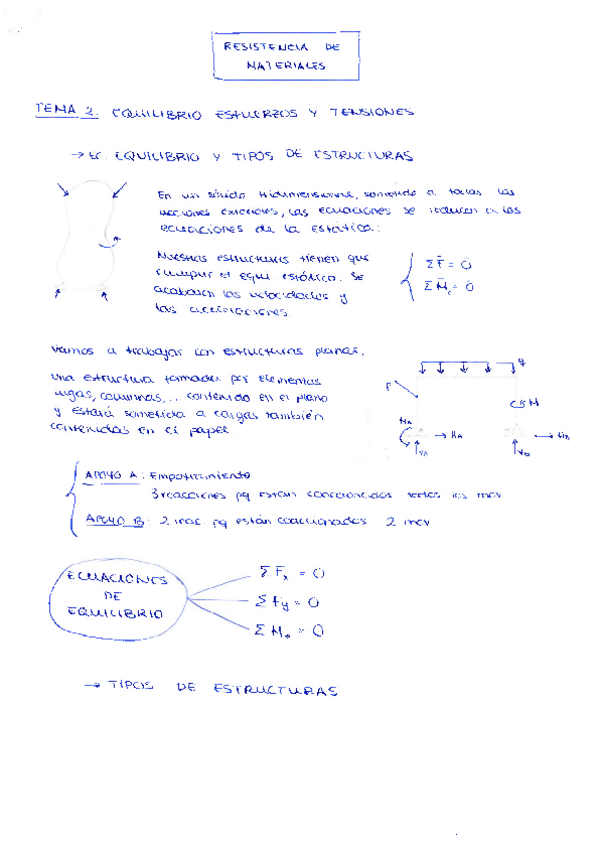 RESISTENCIA DE
MATERIALES
TEMA 2. EQUILIBRIO ESFUERZOS Y TENSIONES
→ EC. EQUILIBRIO Y TIPOS DE ESTRUCTURAS
En un sólido tridimensional, sometido a todas las
acciones exteriores, las ecuaciones se reducen a las
ecuaciones de la estática:
Nuestras estructuras tienen que
cumplir el equi estático. Se
acabaron las velocidades y
las aceleraciones
Σ F̄ = 0
Σ M̄c = 0
Vamos a trabajar con estructuras planas.
Una estructura formada por elementos
vigas, columnas,... contenido en el plano
y estará sometida a cargas también
contenidas en el papel
q
F
M
MA
HA
VA
HB
VB
APOYO A: Empotramiento
3 reacciones pq están coaccionados todos los mov
APOYO B: 2 reac pq están coaccionados 2 mov
ECUACIONES
DE
EQUILIBRIO
Σ Fx = 0
Σ Fy = 0
Σ Mo = 0
→ TIPOS DE ESTRUCTURAS